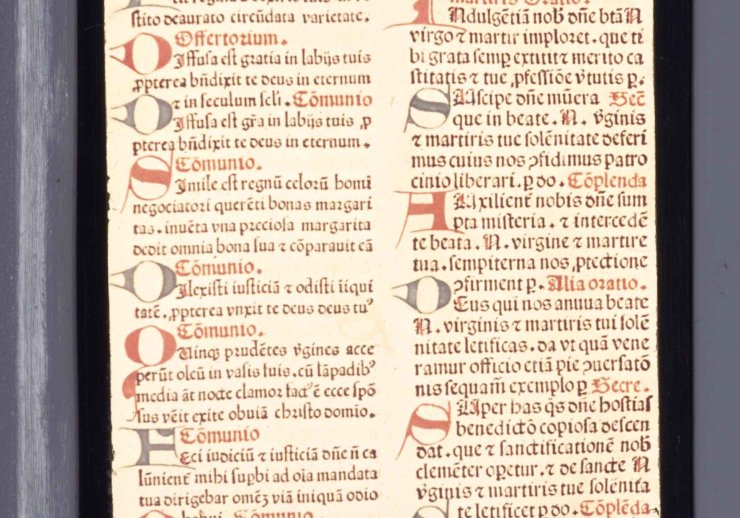 stito deaurato circũdata varietate.
Offertorium.
DIffusa est gratia in labijs tuis
ꝓpterea bñdixit te deus in eternum
Oꝛ in seculum scli. Cõmunio
DIffusa est gr̃a in labijs tuis ꝓ
pterea bñdixit te deus in eternum.
Cõmunio.
SImile est regnũ celorũ homi
negociatori querẽti bonas margari
tas. inuẽta vna preciosa margarita
dedit omnia bona sua ⁊ cõparauit eã
Cõmunio.
DIlexisti iusticiã ⁊ odisti iĩqui
tatẽ. ꝓpterea vnxit te deus deus tuꝰ
Cõmunio.
QUinqꝫ prudẽtes ṽgines acce
perũt oleũ in vasis suis. cũ lãpadibꝰ
media ãt nocte clamor factꝰ ẽ ecce spõ
sus vẽit exite obuiã christo domio.
Cõmunio
FEci iudiciũ ⁊ iusticiã dñe ñ ca
lũnient mihi supbi ad oĩa mandata
tua dirigebar omẽꝫ viã iniquã odio
habui. Cõmunio
martiris Oratio.
INdulgẽtiã nob̃ dñe btãN
virgo ⁊ martir imploret. que ti
bi grata semꝑ extitit ⁊ merito ca
stitatis ⁊ tue ꝓfessiõe ṽtutis ꝑ.
SUscipe dñe mũera Secr̃
que in beate. N. ṽginis
⁊ martiris tue solẽnitate deferi
mus cuius nos ꝯfidimus patro
cinio liberari. ꝑ do. Cõplenda
AUxilient nobis dñe sum
pta misteria. ⁊ intercedẽ
te beata. N. virgine ⁊ martire
tua. sempiterna nos ꝓtectione
ꝯfirment ꝑ. Alia oratio.
DEus qui nos annua beate
N. virginis ⁊ martiris tui solẽ
nitate letificas. da vt quã vene
ramur officio etiã pie ꝯuersatõ
nis sequam̃ exemplo ꝑ Secre.
SUper has qs̃ dñe hostias
benedictõ copiosa descen
dat. que ⁊ sanctificationẽ nob̃
clemẽter oꝑetur. ⁊ de sancte N
ṽginis ⁊ martiris tue solẽnita
te letificet ꝑ do. Cõplẽda